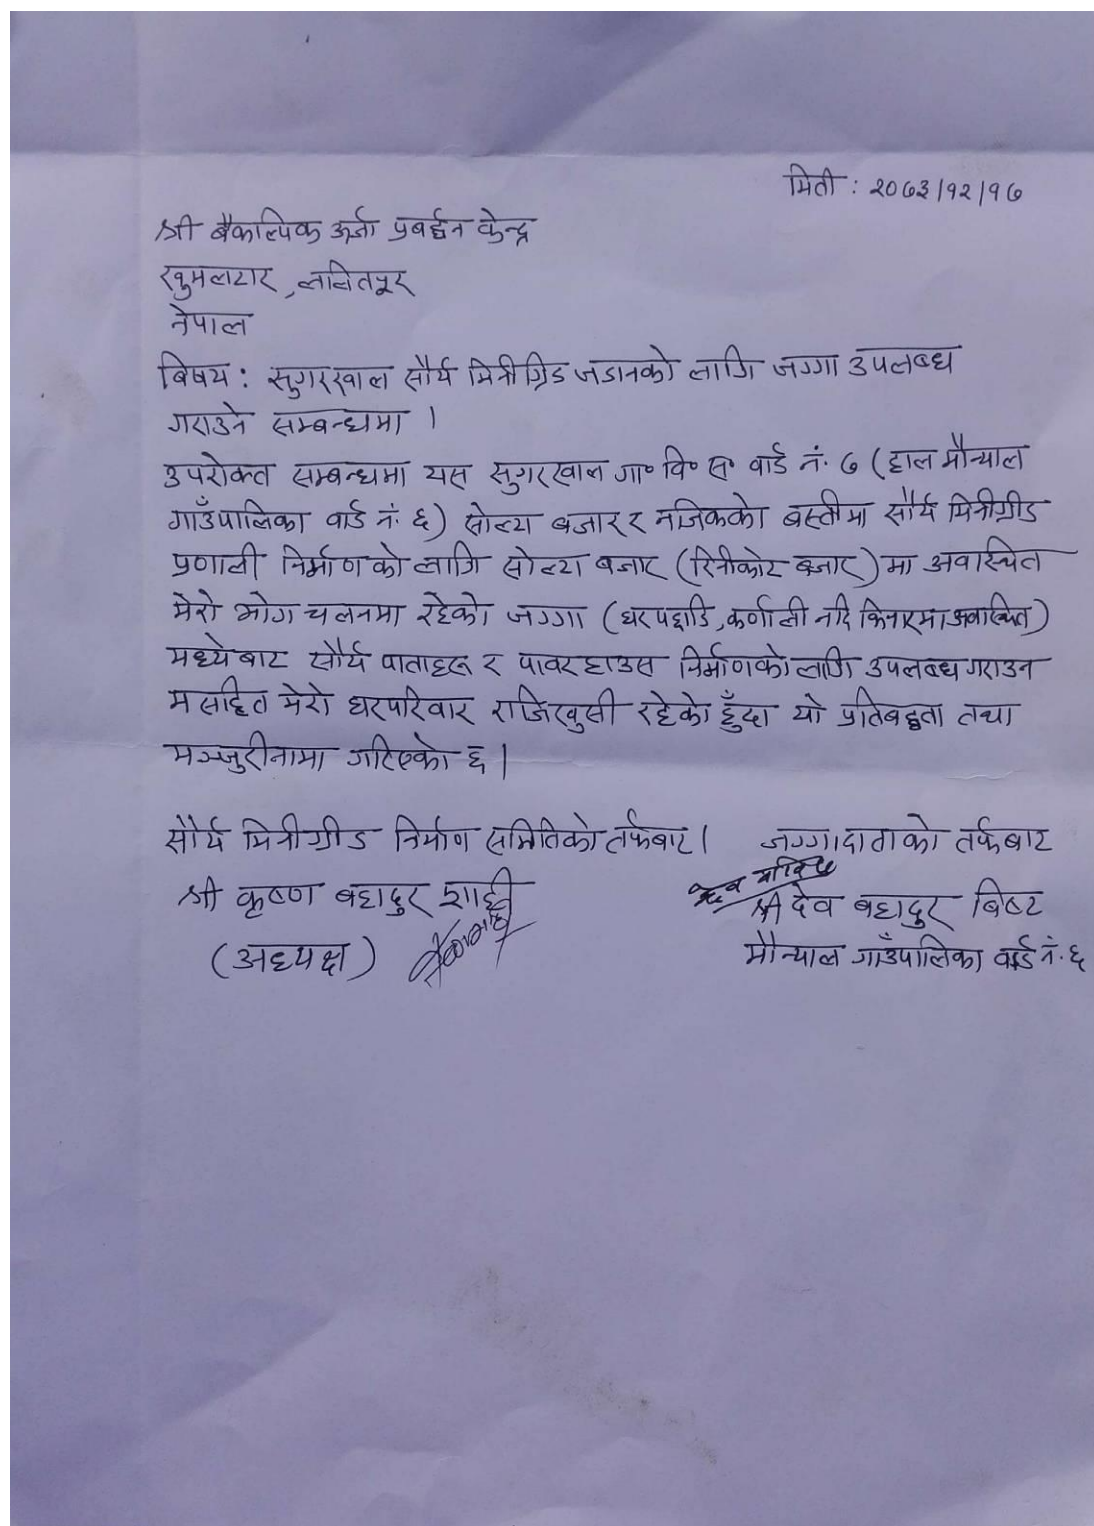 मिती : २०७३/१२/१७
श्री बैकाल्पिक ऊर्जा प्रबर्द्धन केन्द्र
खुमलटार, ललितपूर
नेपाल
बिषय : सुगरखाल सौर्य मिनीग्रिड जडानको लागि जग्गा उपलब्ध
गराउने सम्बन्धमा ।
उपरोक्त सम्बन्धमा यस सुगरखाल गा॰ वि॰ स॰ वार्ड नं. ७ (हाल मौन्याल
गाउँपालिका वार्ड नं. ६) सोल्टा बजार र नजिकको बस्तीमा सौर्य मिनीग्रीड
प्रणाली निर्माणको लागि सोल्टा बजार (रिनीकोट बजार) मा अवास्थित
मेरो भोग चलनमा रहेको जग्गा (घरपछाडि, कर्णाली नदि किनारमा अवास्थित)
मध्येबाट सौर्य पाताहरू र पावरहाउस निर्माणको लागि उपलब्ध गराउन
म सहित मेरो घरपरिवार राजिखुसी रहेको हुँदा यो प्रतिबद्धता तथा
मञ्जुरीनामा गरिएको छ |
सौर्य मिनीग्रीड निर्माण समितिको तर्फबाट | जग्गादाताको तर्फबाट
श्री कृष्ण बहादुर शाही श्री देव बहादुर बिष्ट
(अध्यक्ष) मौन्याल गाउँपालिका वार्ड नं. ६